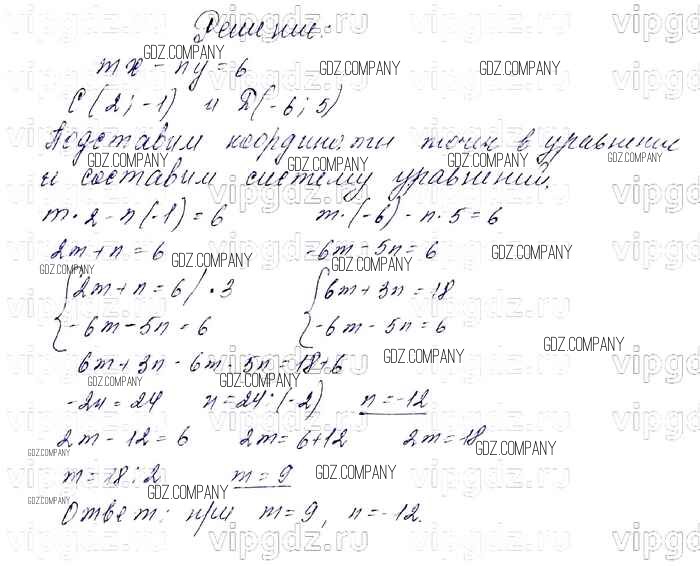 Решение:
mx - ny = 6
C(2; -1) и D(-6; 5)
Подставим координаты точек в уравнение
и составим систему уравнений.
m·2 - n(-1) = 6 m·(-6) - n·5 = 6
2m + n = 6 -6m - 5n = 6
{2m + n = 6 / ·3 {6m + 3n = 18
{-6m - 5n = 6 {-6m - 5n = 6
6m + 3n - 6m - 5n = 18 + 6
-2n = 24 n = 24 : (-2) n = -12
2m - 12 = 6 2m = 6 + 12 2m = 18
m = 18 : 2 m = 9
Ответ: при m = 9, n = -12.
GDZ.COMPANY
vipgdz.ru